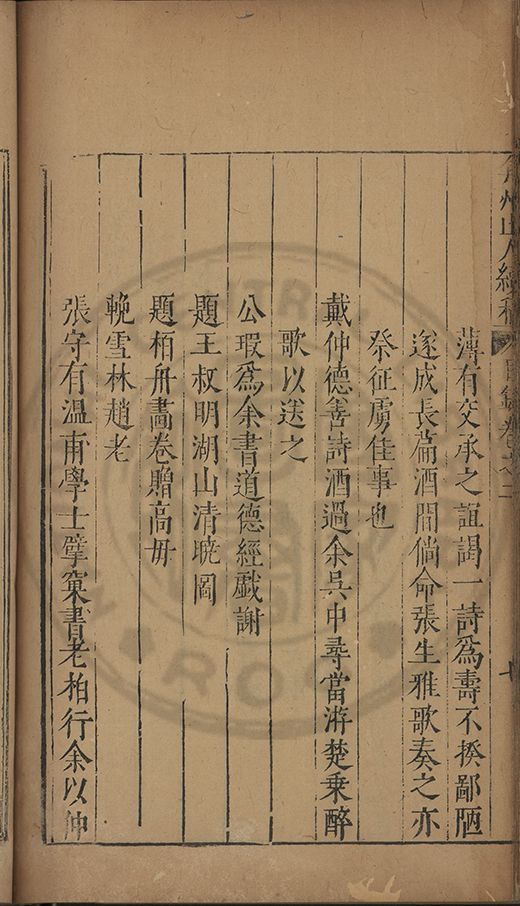 弇州山人續稿 目錄卷之二
薄有交承之誼謁一詩為壽不揆鄙陋
遂成長篇酒間倘命張生雅歌奏之亦
祭征虜佳事也
戴仲德善詩酒過余吳中尋當游楚乘醉
歌以送之
公瑕為余書道德經戲謝
題王叔明湖山清曉圖
題栢舟畫卷贈高毋
輓雪林趙老
張守有溫甫學士擘窠書老柏行余以仲